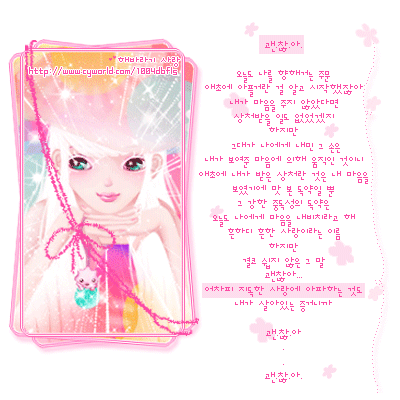 해바라기 사랑
http://www.cyworld.com/1004dbfls
괜찮아.
오늘도 나를 향해거는 주문
애초에 아플거란 걸 알고 시작했잖아
내가 마음을 주지 않았다면
상처받을 일도 없었겠지
하지만
그대가 나에게 내민 그 손은
내가 보여준 마음에 의해 움직인 것이니
애초에 내가 받은 상처란 것은 내 마음을
보였기에 맛 본 독약일 뿐
그 강한 중독성의 독약은
오늘도 나에게 마음을 내비치라고 해
흔하디 흔한 사랑이라는 이름
하지만
결코 쉽지 않은 그 말
괜찮아...
어차피 지독한 사랑에 아파하는 것도
내가 살아있는 증거니까
괜찮아
.
괜찮아.